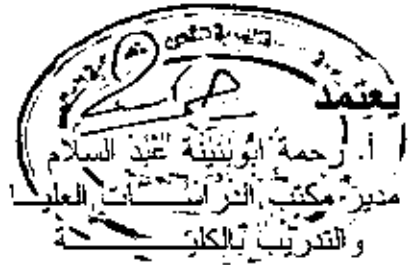 يعتمد
أ. رحمة أبوبنينة عبد السلام
مدير مكتب الدراسات العليا
والتدريب بالكلية